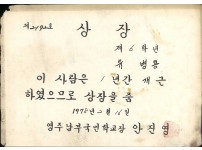 상장
제 6 학년
유병용
이 사람은 1 년간 개근
하였으므로 상장을 줌
1978년 2월 16일
영주남부국민학교장 안진영